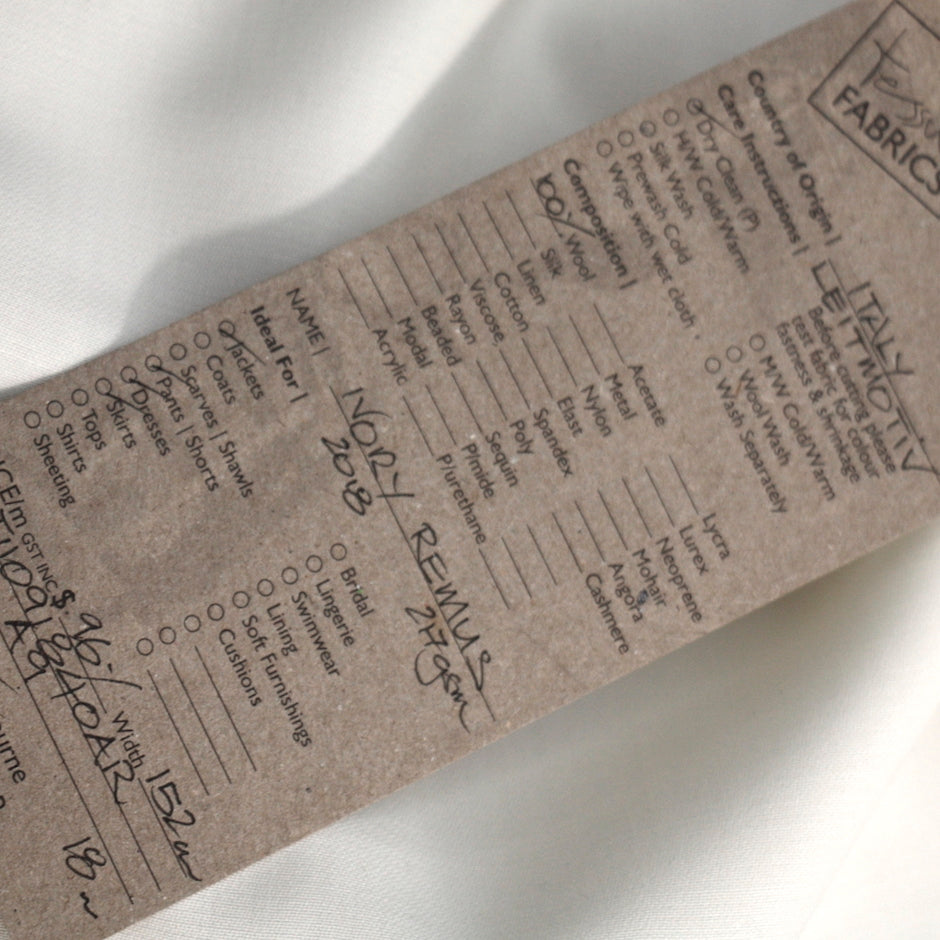 Tessuti
FABRICS
Country of Origin | ITALY
LEITMOTIV
Care Instructions | Before cutting please
test fabric for colour
fastness & shrinkage
Dry Clean (P)
H/W Cold/Warm
Silk Wash
Prewash Cold
Wipe with wet cloth
M/W Cold/Warm
Wool Wash
Wash Separately
Composition |
100% Wool
Silk
Linen
Cotton
Viscose
Rayon
Beaded
Modal
Acrylic
Acetate
Metal
Nylon
Elast
Spandex
Poly
Sequin
P/mide
Plurethane
Lycra
Lurex
Neoprene
Mohair
Angora
Cashmere
NAME | IVORY REMUS
2018 217gsm
Ideal For |
Jackets
Coats
Scarves | Shawls
Pants | Shorts
Dresses
Skirts
Tops
Shirts
Sheeting
Bridal
Lingerie
Swimwear
Lining
Soft Furnishings
Cushions
ICE/m GST INC $ 96.- Width 152cm
A9 18m
urne